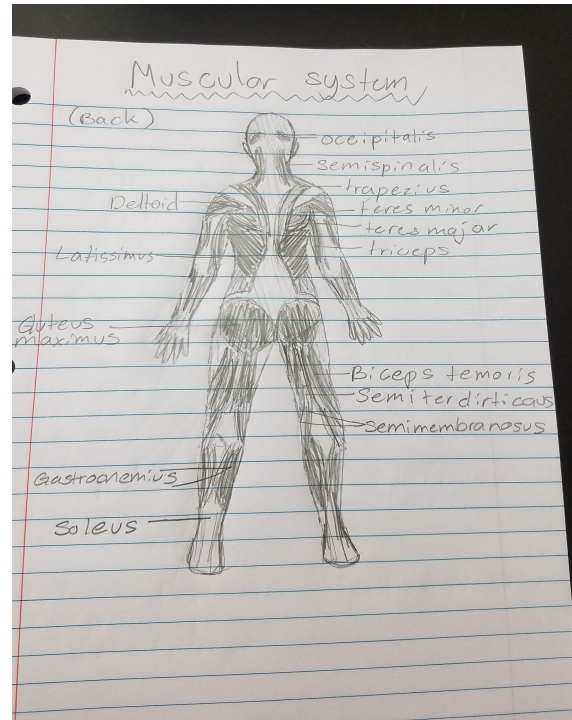 Muscular system
(Back)
oceipitalis
semispinalis
trapezius
Deltoid
teres minor
teres major
triceps
Latissimus
Guteus
maximus
Biceps temoris
Semiterdirticaus
Semimembranosus
Gastroonemius
Soleus